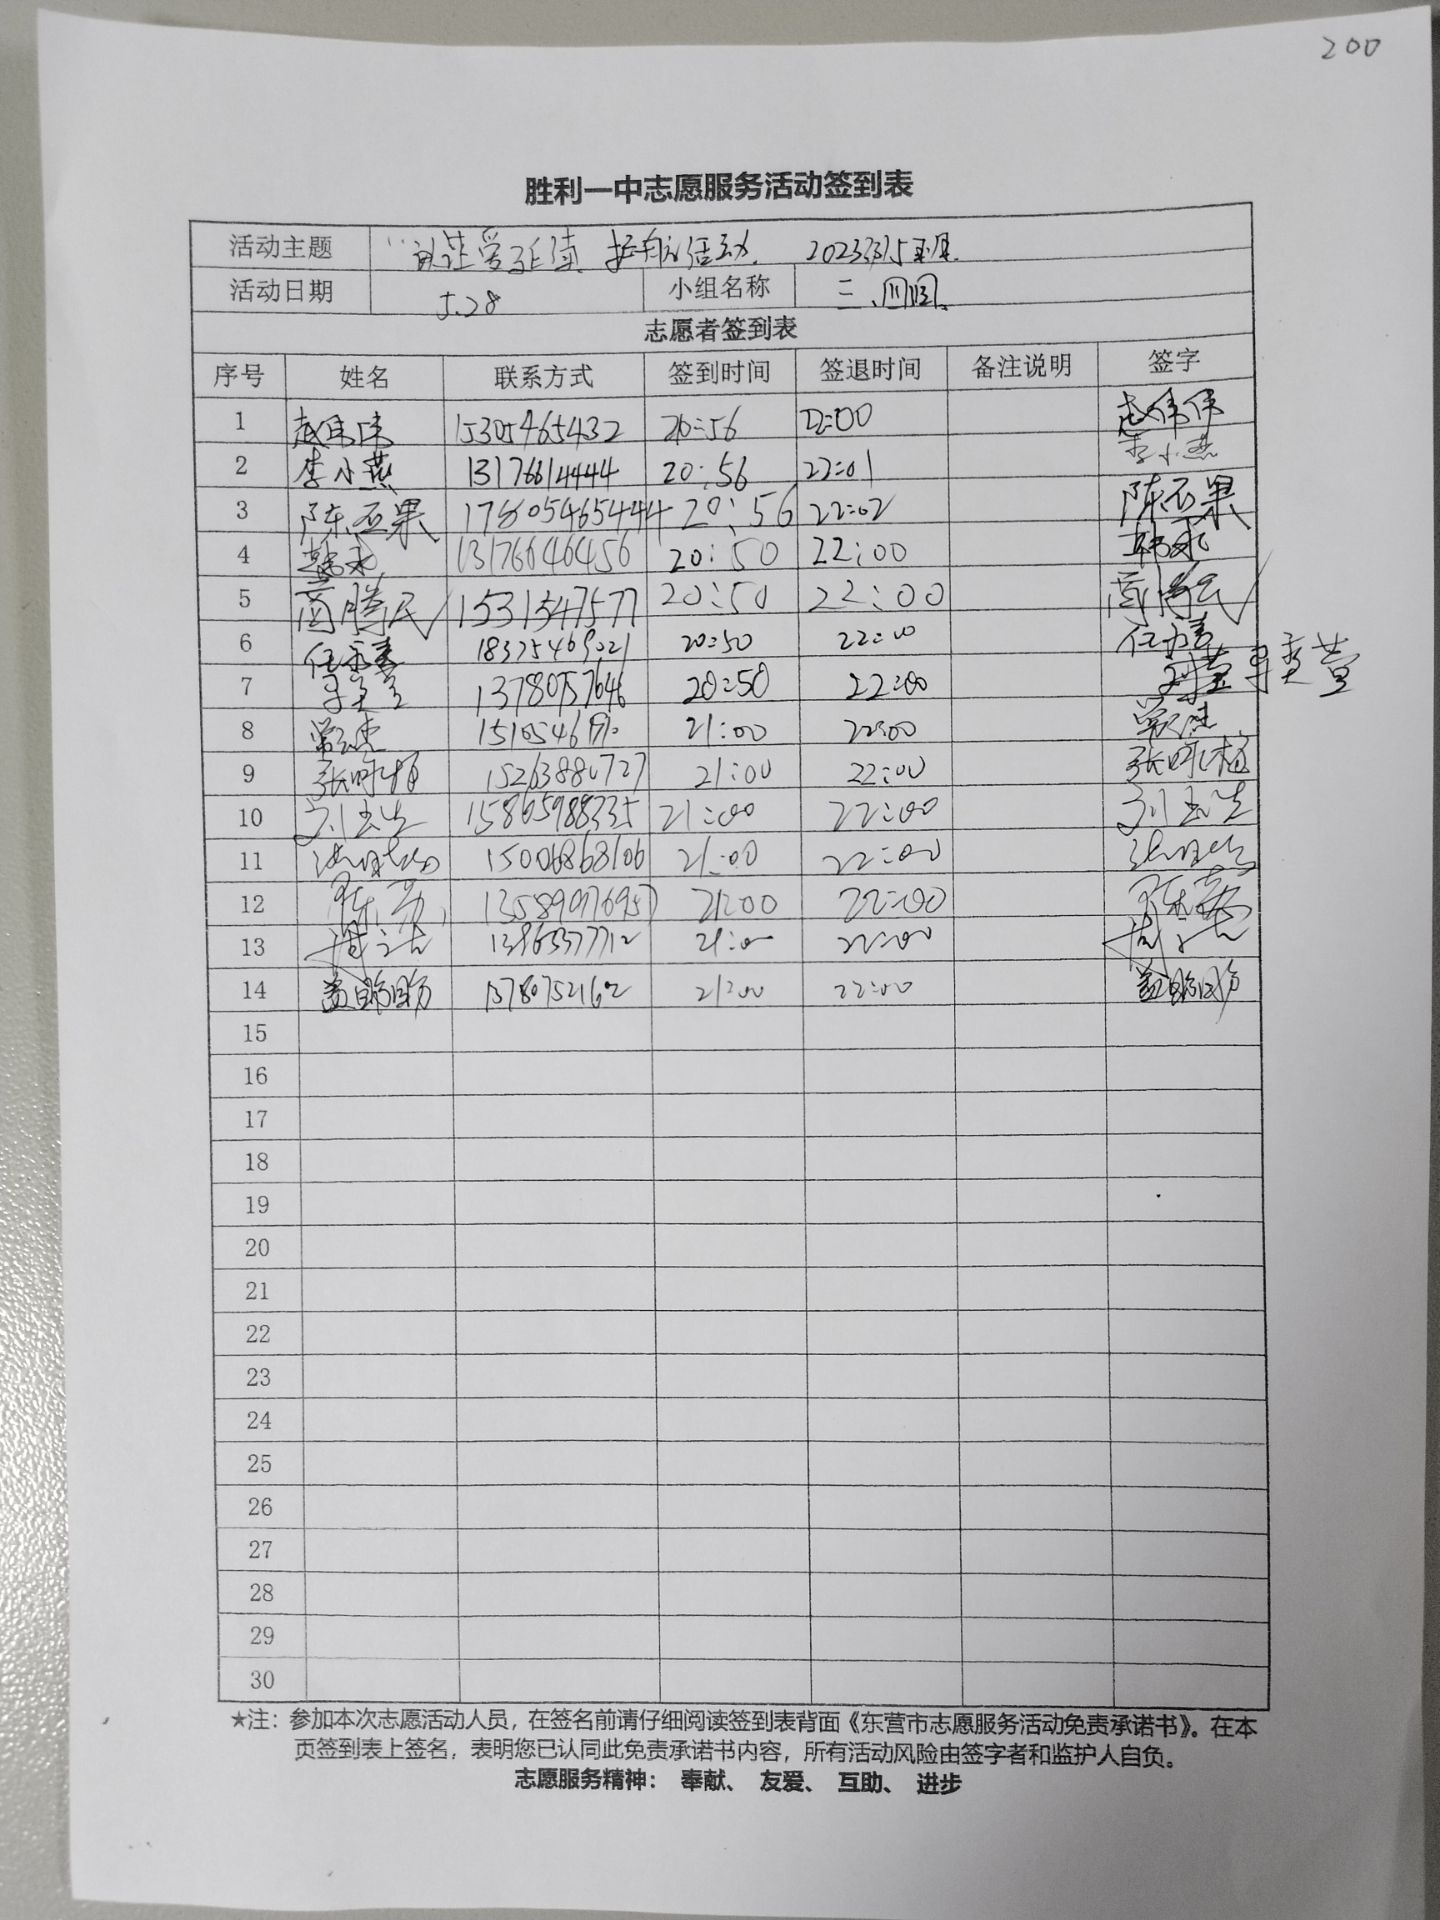 200
胜利一中志愿服务活动签到表
活动主题 "让爱延续 护航活动
活动日期 5.28 小组名称 二、四周
志愿者签到表
序号 姓名 联系方式 签到时间 签退时间 备注说明 签字
1 赵伟伟 15305465432 20:56 22:00 赵伟伟
2 李小燕 13176614444 20:56 22:01 李小燕
3 陈丕果 17860546544 20:56 22:02 陈丕果
4 韩永 13176646456 20:50 22:00 韩永
5 腾民 20:50 22:00
6 任永春 18325469021 20:50 22:00 任永春
7 13780757646 20:50 22:00
8 21:00 22:00
9 张咏梅 15263880727 21:00 22:00 张咏梅
10 刘玉生 15865988335 21:00 22:00 刘玉生
11 15006868106 21:00 22:00
12 陈 21:00 22:00 陈
13 13963377712 21:00 22:00
14 盖盼盼 13780752162 21:00 22:00 盖盼盼
15
16
17
18
19
20
21
22
23
24
25
26
27
28
29
30
★注：参加本次志愿活动人员，在签名前请仔细阅读签到表背面《东营市志愿服务活动免责承诺书》。在本
页签到表上签名，表明您已认同此免责承诺书内容，所有活动风险由签字者和监护人自负。
志愿服务精神： 奉献、 友爱、 互助、 进步